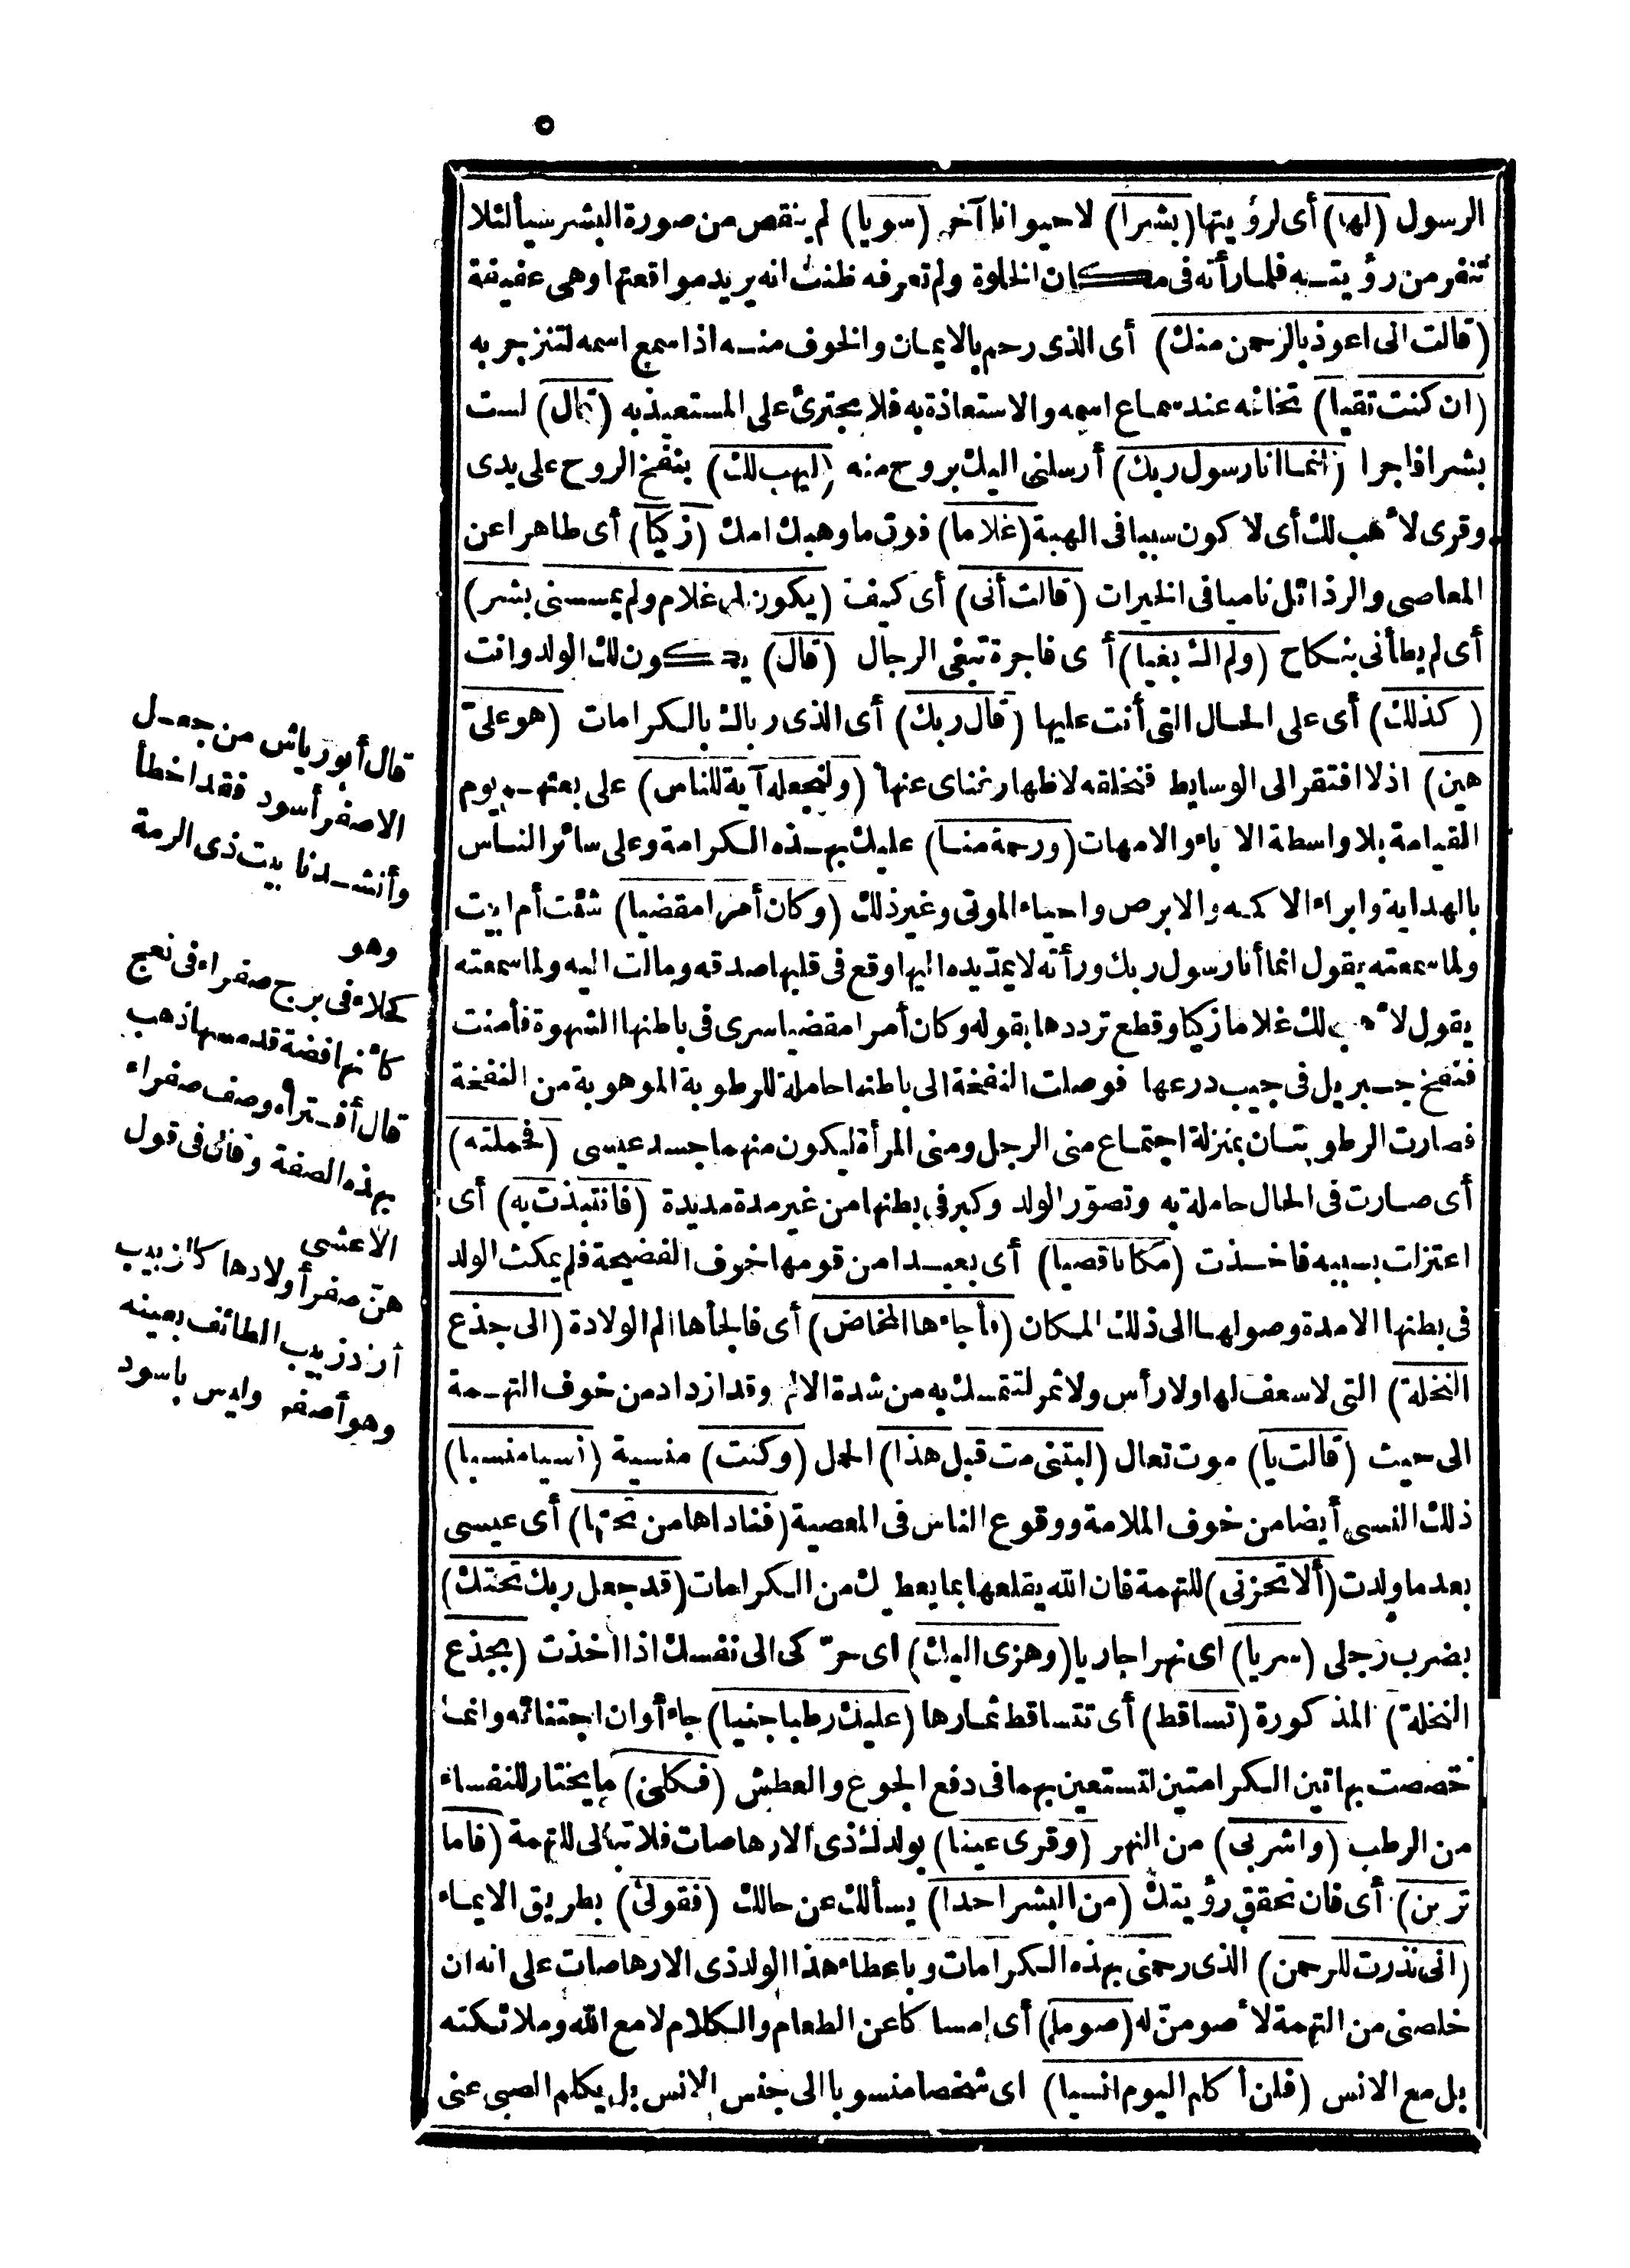 ٥
الرسول (لها) أى لرؤيتها (بشرا) لا حيوانا آخر (سويا) لم ينقص من صورة البشر سيأ لئلا
تنفر من رؤيتـه فلما رأته فى مكان الخلوة ولم تعرفه ظنت انه يريد مواقعتها وهى عفيفة
(قالت انى اعوذ بالرحمن منك) أى الذى رحم بالايمان والخوف منـه اذا سمع اسمه لتنزجر به
(ان كنت تقيا) تخافه عند سماع اسمه والاستعاذة به فلا يجترئ على المستعيذ به (قال) لست
بشرا فاجرا (انما انا رسول ربك) أرسلنى اليك بروح منه (ليهب لك) بنفخ الروح على يدى
وقرى لأهب لك أى لاكون سببا فى الهبة (غلاما) فوق ما وهبك امك (زكيا) أى طاهرا عن
المعاصى والرذائل ناميا فى الخيرات (قالت أنى) أى كيف (يكون لى غلام ولم يمسسنى بشر)
أى لم يطأنى بنكاح (ولم الـ بغيا) أى فاجرة تبغى الرجال (قال) يكون لك الولد وانت
(كذلك) أى على الحال التى أنت عليها (قال ربك) أى الذى رباك بالكرامات (هو علىّ
هين) اذ لا افتقر الى الوسايط فنخلقه لاظهار غناى عنها (ولنجعله آية للناس) على بعثهـم يوم
القيامة بلا واسطة الاباء والامهات (ورحمة منا) عليك بهـذه الكرامة وعلى سائر الناس
بالهداية وابراء الاكمه والابرص واحياء الموتى وغير ذلك (وكان أمرا مقضيا) شئت أم ابيت
ولما سمعته يقول انما أنا رسول ربك ورأته لا يمدّيده اليها وقع فى قلبها صدقه ومالت اليه ولما سمعته
يقول لأهب لك غلاما زكيا وقطع ترددها بقوله وكان أمرا مقضيا سرى فى باطنها الشهوة فأمنت
فنفخ جـبريل فى جيب درعها فوصلت النفخة الى باطنها حاملة للرطوبة الموهوبة من النفخة
فصارت الرطوبتان بمنزلة اجتماع منى الرجل ومنى المرأة ليكون منهما جسد عيسى (فحملته)
أى صارت فى الحال حاملة به وتصوّر الولد وكبر فى بطنها من غير مدة مديدة (فانتبذت به) أى
اعتزلت بسببه فاخـذت (مكانا قصيا) أى بعيـدا من قومها خوف الفضيحة فلم يمكث الولد
فى بطنها الا مدة وصولها الى ذلك المكان (فأجاءها المخاض) أى فالجأها الم الولادة (الى جذع
النخلة) التى لا سعف لها ولا رأس ولا ثمر لتتمسك به من شدة الالم وقد ازداد من خوف التهـمة
الى حيث (قالت يا) موت تعال (ليتنى مت قبل هذا) الحمل (وكنت) منسية (نسيا منسيا)
ذلك النسى أيضا من خوف الملامة ووقوع الناس فى المعصية (فناداها من تحتها) أى عيسى
بعد ما ولدت (ألا تحزنى) للتهمة فان الله يقلعها بما يعطيك من الكرامات (قد جعل ربك تحتك)
بضرب رجلى (سريا) اى نهرا جاريا (وهزى اليك) اى حرّكى الى نفسك اذا أخذت (بجذع
النخلة) المذكورة (تساقط) أى تتساقط ثمارها (عليك رطبا جنيا) جاء أوان اجتنائه وانما
خصصت بهاتين الكرامتين لتستعين بهما فى دفع الجوع والعطش (فكلى) ما يختار للنفساء
من الرطب (واشربى) من النهر (وقرى عينا) بولدك ذى الارهاصات فلا تبالى للتهمة (فاما
ترين) أى فان تحقق رؤيتك (من البشر احدا) يسألك عن حالك (فقولى) بطريق الايماء
(انى نذرت للرحمن) الذى رحمنى بهذه الكرامات وباعطاء هذا الولد ذى الارهاصات على انه ان
خلصنى من التهمة لأصومنّ له (صوما) أى إمساكا عن الطعام والكلام لا مع الله وملائكته
بل مع الانس (فلن أكلم اليوم انسيا) اى شخصا منسوبا الى جنس الانس بل يكلم الصبى عنى
قال أبو رياش من جعـل
الاصفر أسود فقد اخطأ
وأنشـدنا بيت ذى الرمة
وهو
كحلاء فى برج صفراء فى نعج
كأنها فضة قد مسها ذهب
قال أفـتراه وصف صفراء
بهذه الصفة وقال فى قول
الاعشى
هنّ صفر أولادها كالزبيب
أراد زبيب الطائف بعينه
وهو أصفر وليس باسود